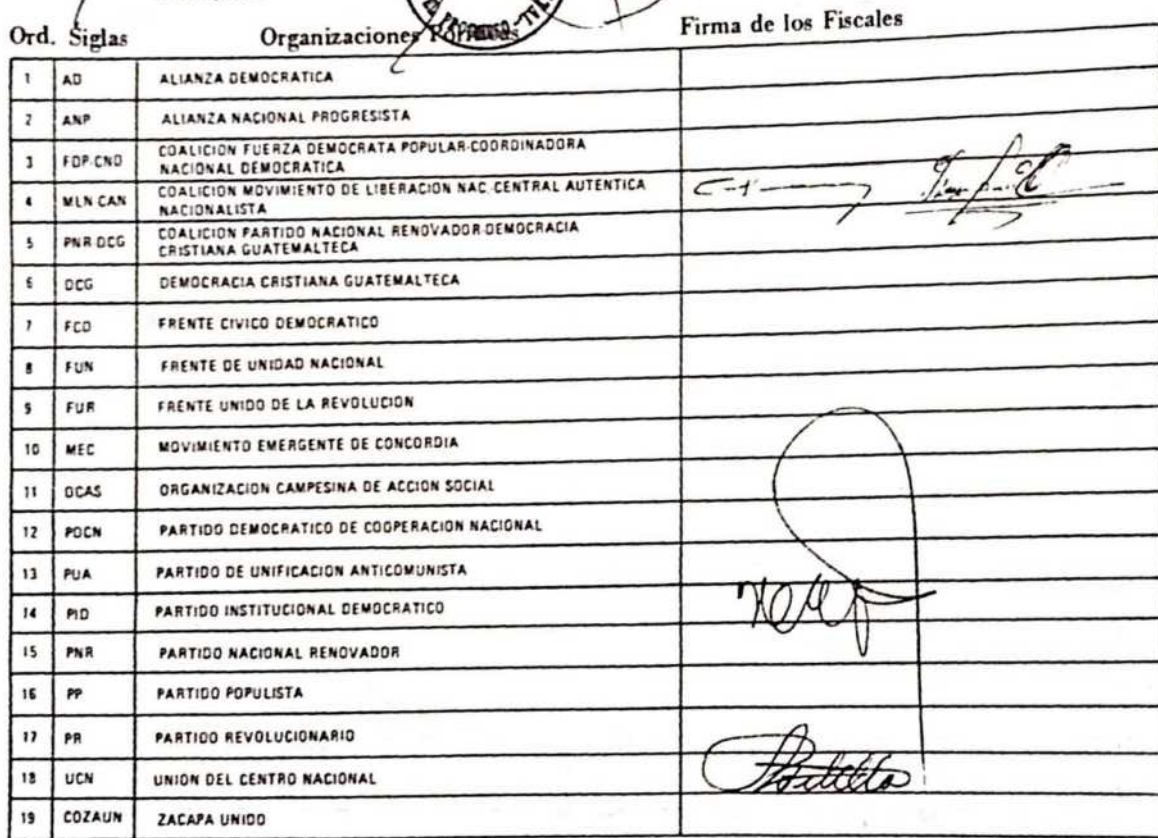 Ord. Siglas Organizaciones Políticas Firma de los Fiscales
1 AD ALIANZA DEMOCRATICA
2 ANP ALIANZA NACIONAL PROGRESISTA
3 FDP-CND COALICION FUERZA DEMOCRATA POPULAR-COORDINADORA
NACIONAL DEMOCRATICA
4 MLN-CAN COALICION MOVIMIENTO DE LIBERACION NAC-CENTRAL AUTENTICA
NACIONALISTA
5 PNR-DCG COALICION PARTIDO NACIONAL RENOVADOR-DEMOCRACIA
CRISTIANA GUATEMALTECA
6 DCG DEMOCRACIA CRISTIANA GUATEMALTECA
7 FCD FRENTE CIVICO DEMOCRATICO
8 FUN FRENTE DE UNIDAD NACIONAL
9 FUR FRENTE UNIDO DE LA REVOLUCION
10 MEC MOVIMIENTO EMERGENTE DE CONCORDIA
11 OCAS ORGANIZACION CAMPESINA DE ACCION SOCIAL
12 PDCN PARTIDO DEMOCRATICO DE COOPERACION NACIONAL
13 PUA PARTIDO DE UNIFICACION ANTICOMUNISTA
14 PID PARTIDO INSTITUCIONAL DEMOCRATICO
15 PNR PARTIDO NACIONAL RENOVADOR
16 PP PARTIDO POPULISTA
17 PR PARTIDO REVOLUCIONARIO
18 UCN UNION DEL CENTRO NACIONAL
19 COZAUN ZACAPA UNIDO